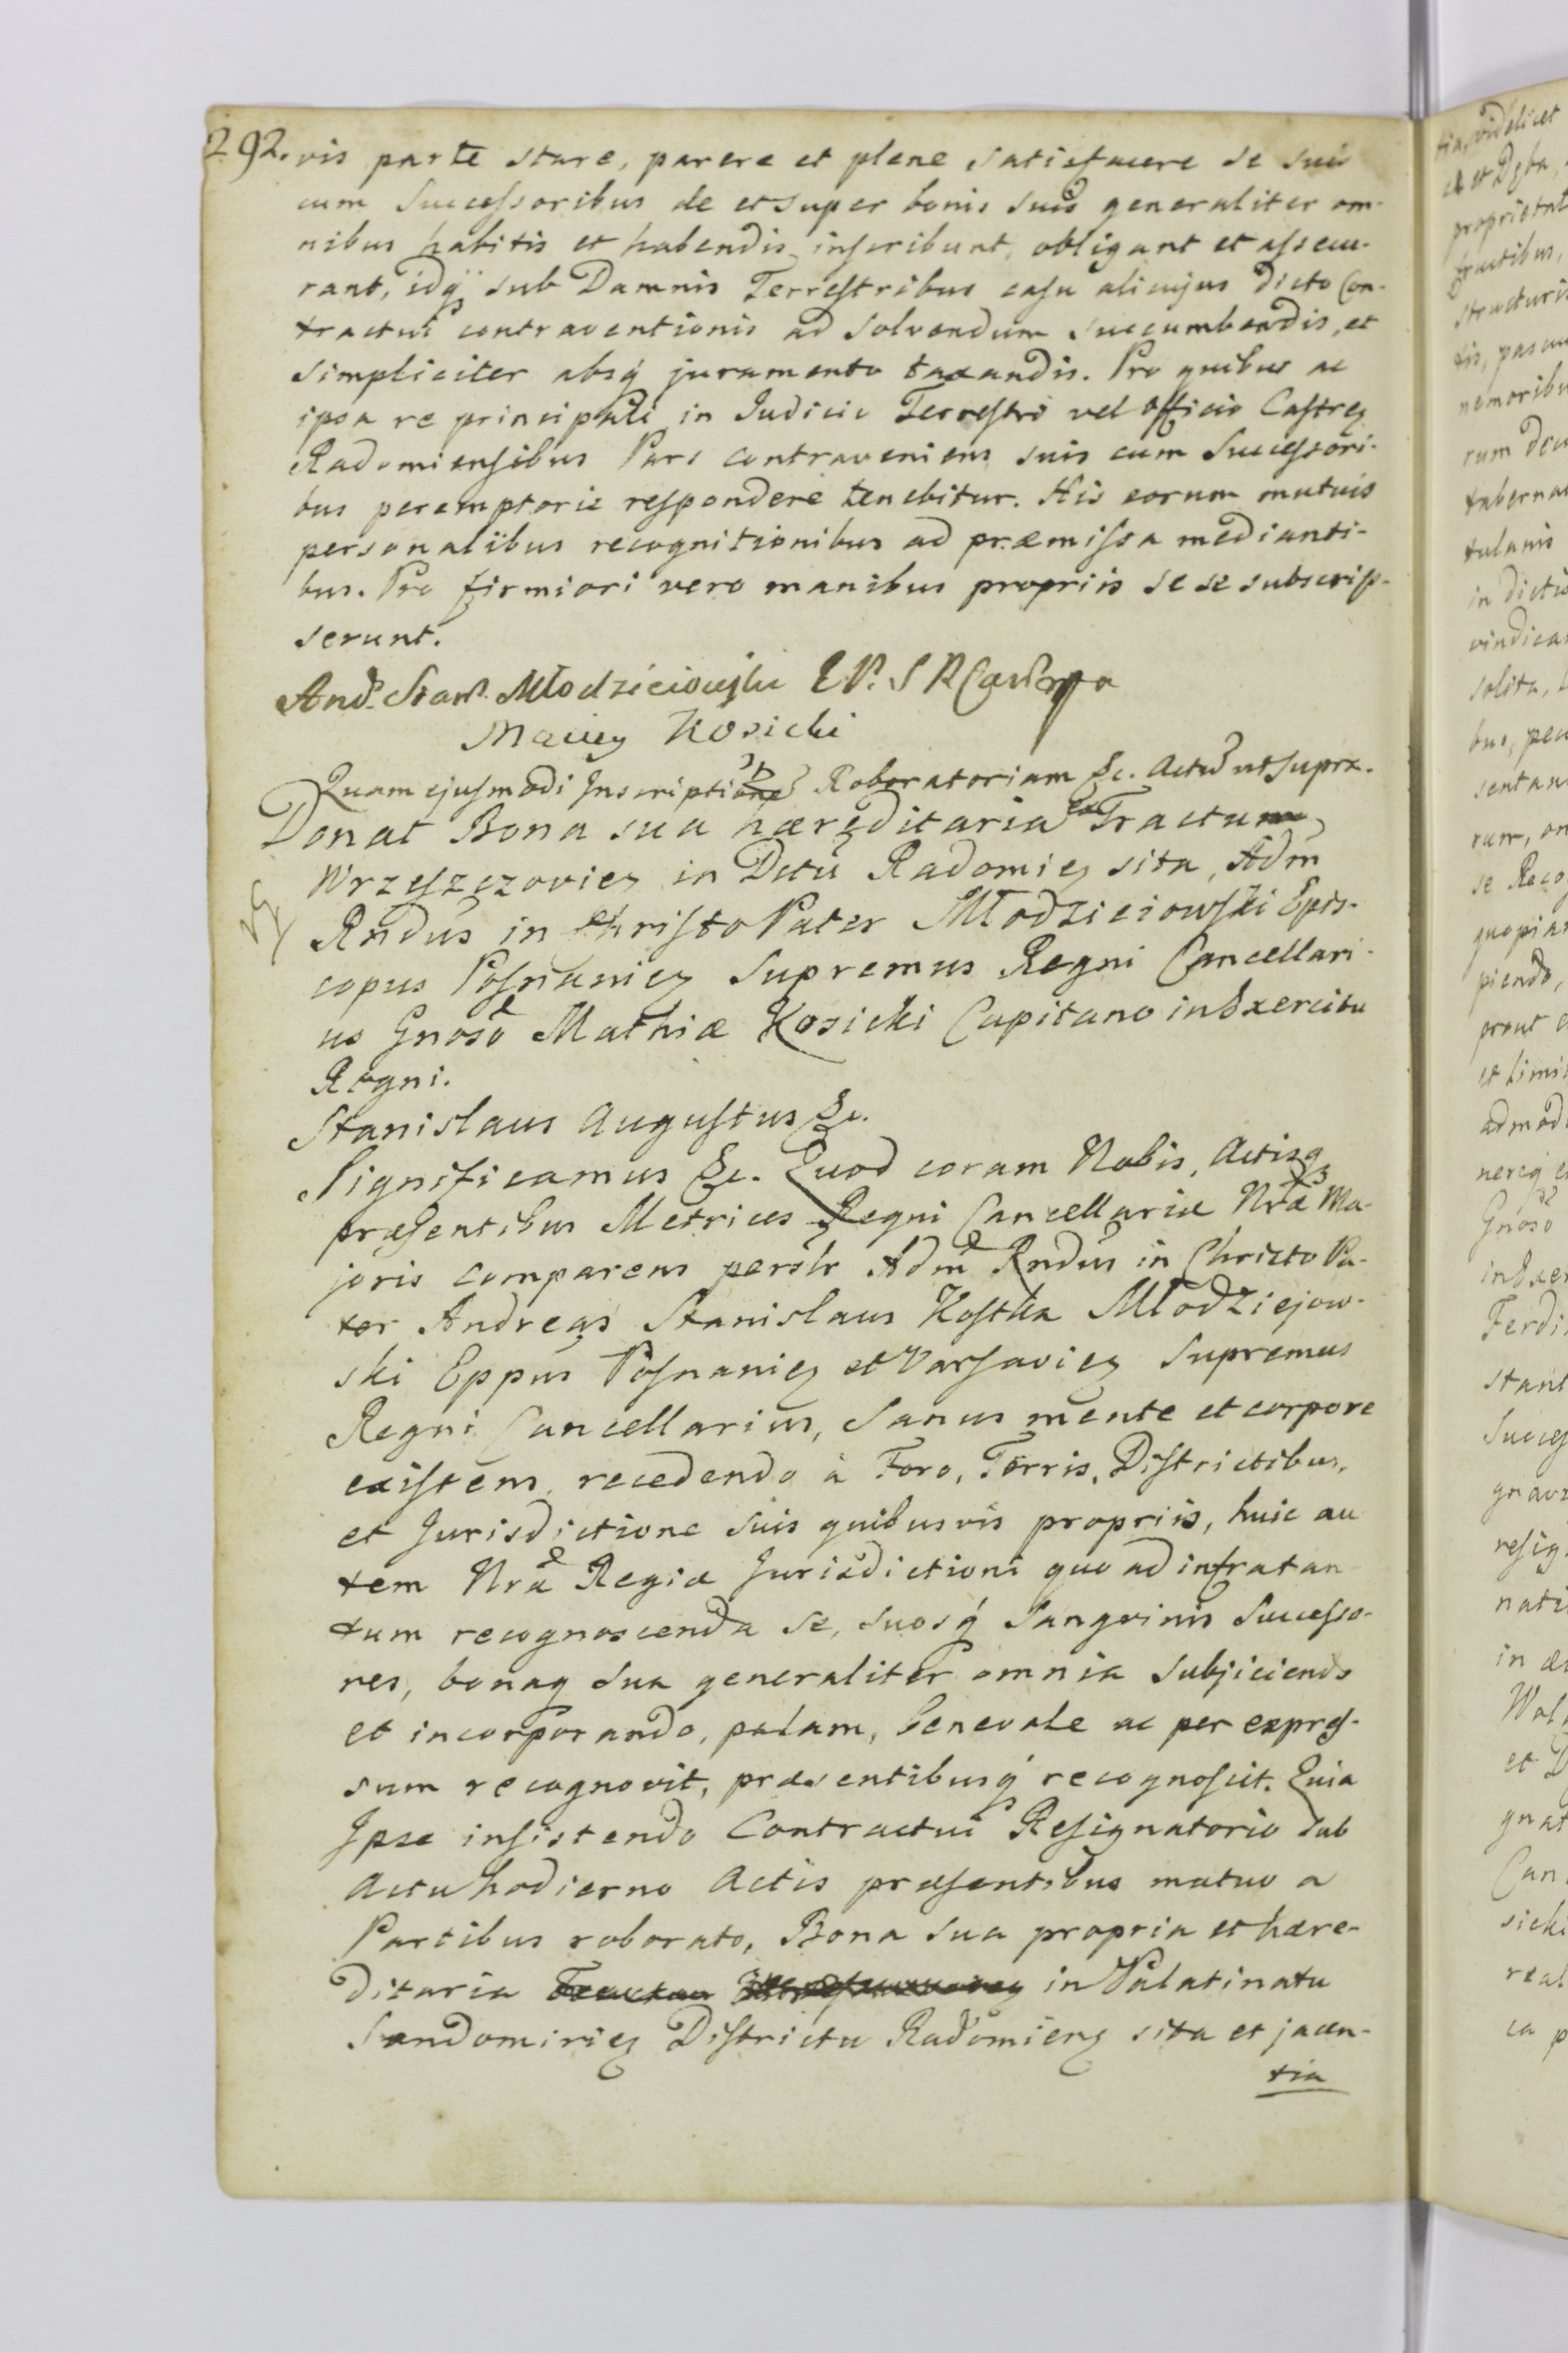 292. vis parte stare, parere et plene satisfacere se suis
cum Successoribus de et super bonis suis generaliter om-
nibus habitis et habendis inscribunt, obligant et assecu-
rant, idq̃ sub Damnis Terrestribus casu alicujus dicto Con-
tractui contraventionis ad solvendum succumbendis, et
simpliciter absq́ juramento taxandis. Pro quibus ac
ipsa re principali in Judicio Terrestri vel Officio Castreȝ
Radomiensibus Pars contraveniens suis cum Successori-
bus peremptorie respondere tenebitur. His eorum mutuis
personalibus recognitionibus ad præmissa medianti-
bus. Pro firmiori vero manibus propriis se se subscrip-
serunt.
And. Stan. Młodzieiowski E P.
Maciey Kosicki
Quam ejusmodi Inscriptione Roboratoriam &c. Actũ ut supra.
Donat Bona sua hæreditaria Tractum
Wrzeszczovieȝ in Dctũ Radomieȝ sita, Adm
Rndus in Christo Pater Młodzieiowski Epis-
copus Posnanieȝ Supremus Regni Cancellari-
us Gnoso Mathiæ Kosicki Capitano in Exercitu
Regni.
Stanislaus Augustus &c.
Significamus &c. Quod coram Nobis, Actisq́
præsentibus Metrices Regni Cancellariæ Nræ Ma-
joris comparens perslr Adm Rndus in Christo Pa-
ter Andreas Stanislaus Kostka Młodziejow-
ski Eppus Posnanieȝ et Varsavieȝ Supremus
Regni Cancellarius, Sanus mente et corpore
existens, recedendo à Foro, Terris, Districtibus,
et Jurisdictione suis quibusvis propriis, huic au
tem Nræ Regiæ Jurisdictioni quo ad infra tan
tum recognoscenda se, suosq́ Sangvinis Successo-
res, bonaq sua generaliter omnia subjiciendo
et incorporando, palam, benevole ac per expres-
sum recognovit, præsentibusq́ recognoscit. Quia
Ipse insistendo Contractui Resignatorio sub
Actu hodierno Actis præsentibus mutuo a
Partibus roborato, Bona sua propria et hære-
ditaria in Palatinatu
Sandomirieȝ Districtu Radomienȝ sita et jacen-
tia